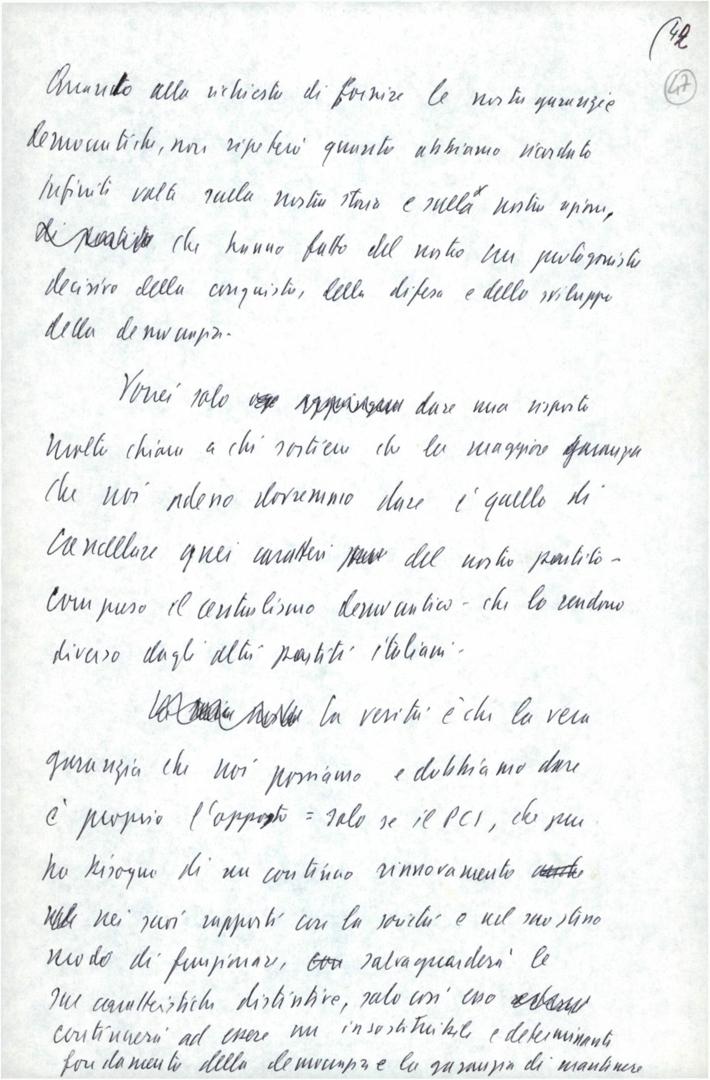 42
47
Quanto alla richiesta di fornire le nostre garanzie
democratiche, non ripeterò quanto abbiamo ricordato
infinite volte sulla nostra storia e sulla nostra azione,
che hanno fatto del nostro un protagonista
decisivo della conquista, della difesa e dello sviluppo
della democrazia.
Vorrei solo dare una risposta
molto chiara a chi sostiene che la maggiore garanzia
che noi adesso dovremmo dare è quella di
cancellare quei caratteri del nostro partito -
compreso il centralismo democratico - che lo rendono
diverso dagli altri partiti italiani.
La verità è che la vera
garanzia che noi possiamo e dobbiamo dare
è proprio l'opposto = solo se il PCI, che pur
ha bisogno di un continuo rinnovamento anche
nei suoi rapporti con la società e nel suo stesso
modo di funzionare, con salvaguarderà le
sue caratteristiche distintive, solo così esso
continuerà ad essere un insostituibile e determinante
fondamento della democrazia e la garanzia di mantenere